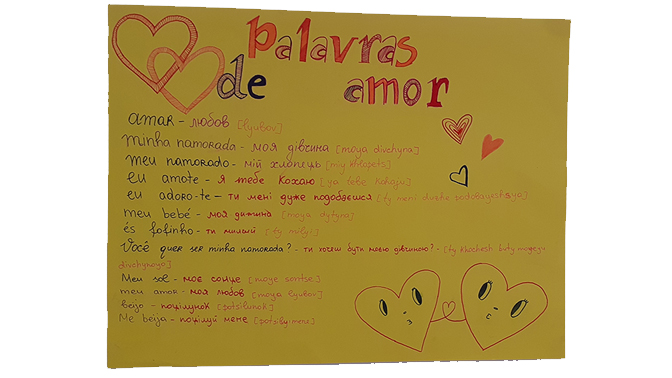 palavras
de amor
amar - любов [lyubov]
minha namorada - моя дівчина [moya divchyna]
meu namorado - мій хлопець [miy khlopets]
eu amote - я тебе кохаю [ya tebe kohaju]
eu adoro-te - ти мені дуже подобаєшся [ty meni duzhe podobayeshsya]
meu bebé - моя дитина [moya dytyna]
és fofinho - ти милий [ty mylyi]
Você quer ser minha namorada? - ти хочеш бути моєю дівчиною? - [ty khochesh buty moyeyu
divchynoyo]
Meu sol - моє сонце [moye sontse]
meu amor - моя любов [moya lyubov]
beijo - поцілунок [potsilunok]
Me beija - поцілуй мене [potsiluy mene]